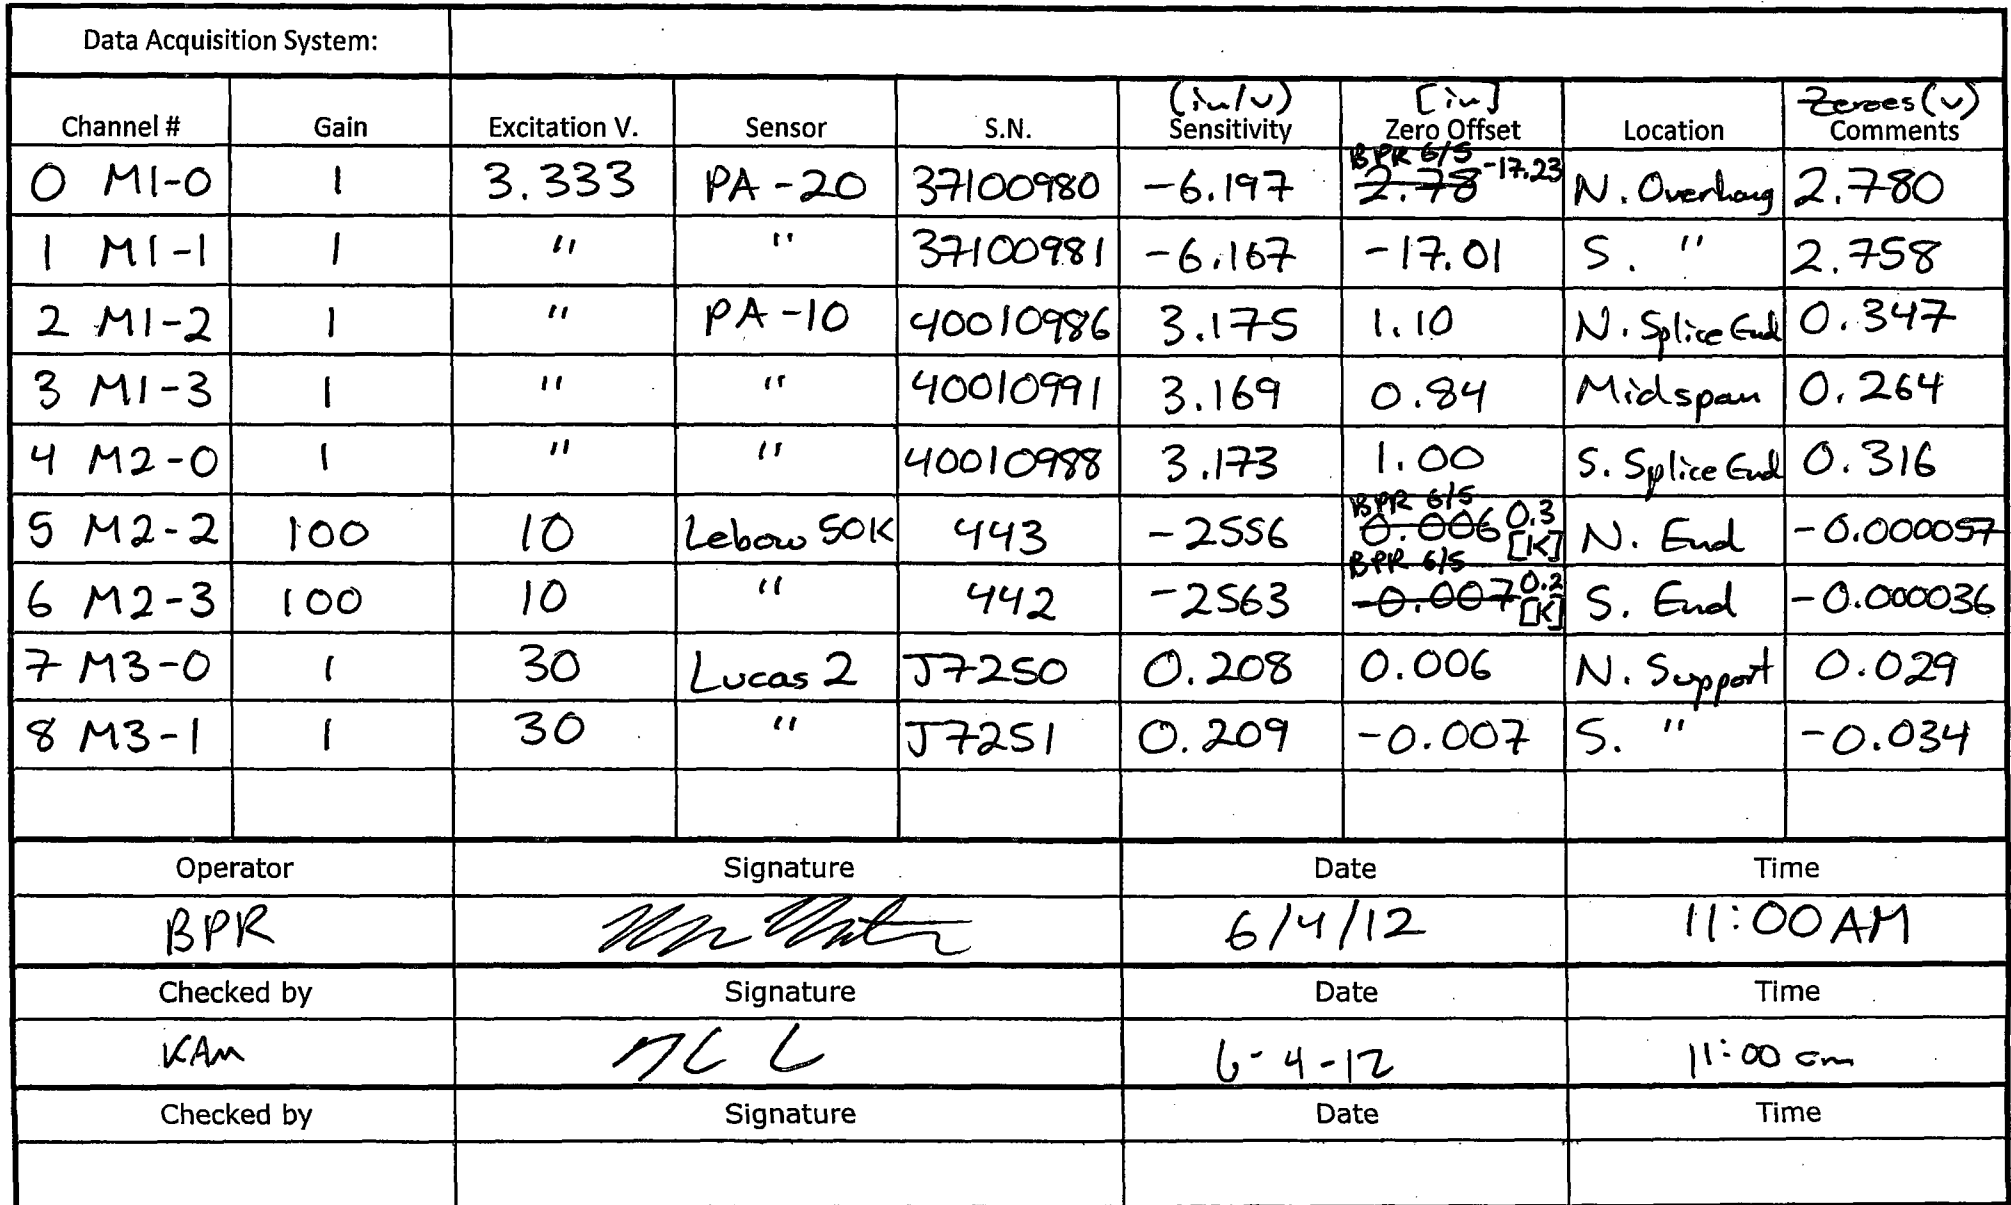 Data Acquisition System:
(in/v) [in] Zeroes (v)
Channel # Gain Excitation V. Sensor S.N. Sensitivity Zero Offset Location Comments
BPR 6/5
0 M1-0 1 3.333 PA-20 37100980 -6.197 2.78 -17.23 N. Overhang 2.780
1 M1-1 1 " " 37100981 -6.167 -17.01 S. " 2.758
2 M1-2 1 " PA-10 40010986 3.175 1.10 N. Splice End 0.347
3 M1-3 1 " " 40010991 3.169 0.84 Midspan 0.264
4 M2-0 1 " " 40010988 3.173 1.00 S. Splice End 0.316
BPR 6/5
5 M2-2 100 10 Lebow 50K 443 -2556 0.006 0.3 [K] N. End -0.000057
BPR 6/5
6 M2-3 100 10 " 442 -2563 -0.007 0.2 [K] S. End -0.000036
7 M3-0 1 30 Lucas 2 J7250 0.208 0.006 N. Support 0.029
8 M3-1 1 30 " J7251 0.209 -0.007 S. " -0.034
Operator Signature Date Time
BPR 6/4/12 11:00 AM
Checked by Signature Date Time
KAM 6-4-12 11:00 am
Checked by Signature Date Time